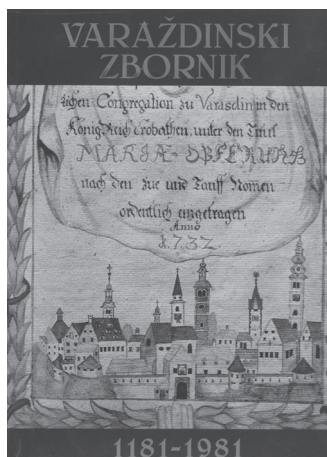 VARAŽDINSKI
ZBORNIK
lichen Congregation zu Varasdin in den
König Reich Crobathen, unter den Titul
MARIÆ-OPFERUNG
nach den Zue und Tauff Nomen
ordentlich eingetragen
Anno
1.7.32.
1181-1981